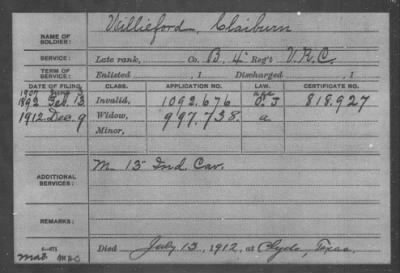 NAME OF SOLDIER: Willieford, Claiburn
SERVICE: Late rank, Co. B, 4" Reg't V.R.C.
TERM OF SERVICE: Enlisted , 1 Discharged , 1
DATE OF FILING. CLASS. APPLICATION NO. LAW. CERTIFICATE NO.
1907
1892 Feb. 13 Invalid, 1092.676 O. J 818.927
1912 Dec. 9 Widow, 997.738. a
Minor,
ADDITIONAL SERVICES: M 15 Ind Cav.
REMARKS:
Died July 13, 1912, at Clyde, Texas.